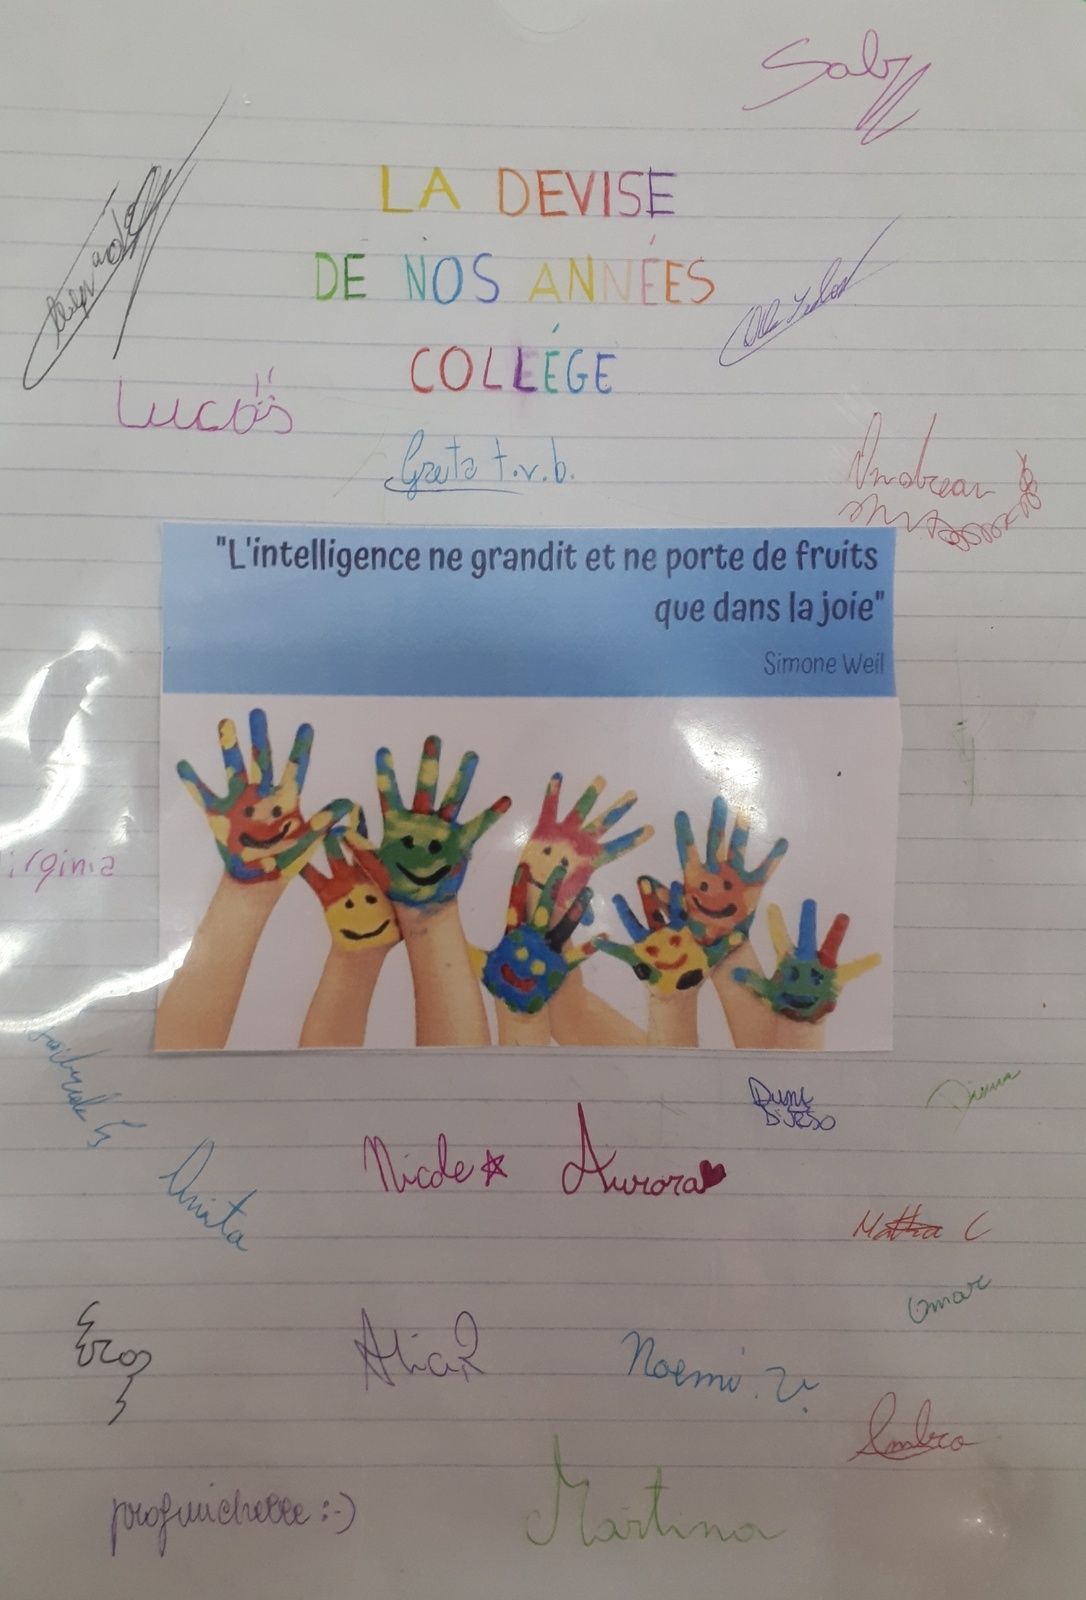 Saby
LA DEVISE
DE NOS ANNÉES
COLLÉGE
Lucas
Greta t.v.b.
Andrea
"L'intelligence ne grandit et ne porte de fruits
que dans la joie"
Simone Weil
irginia
Diana
Nicole Aurora
Anita
Mattia C
Omar
Eros
Noemi. V.
Ambra
profmichelle :-)
Martina